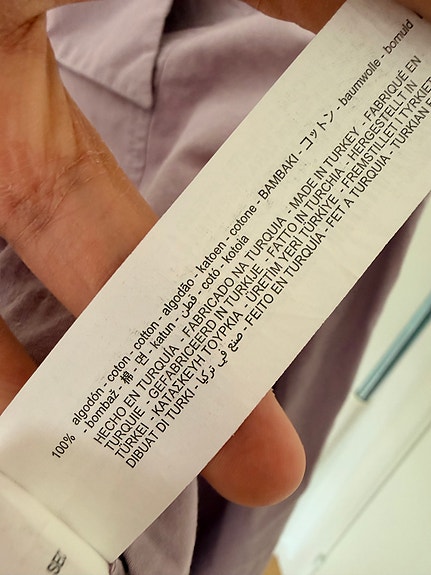 100% algodón - coton - cotton - algodão - katoen - cotone - ΒΑΜΒΑΚΙ - コットン - baumwolle - bomuld
- bombaž - 棉 - 면 - katun - قطن - cotó - kotoia
HECHO EN TURQUÍA - FABRICADO NA TURQUIA - MADE IN TURKEY - FABRIQUÉ EN
TURQUIE - GEFABRICEERD IN TURKIJE - FATTO IN TURCHIA - HERGESTELLT IN
TÜRKEI - ΚΑΤΑΣΚΕΥΗ ΤΟΥΡΚΙΑ - ÜRETIM YERI TÜRKİYE - FREMSTILLET I TYRKIET
DIBUAT DI TURKI - صنع في تركيا - FEITO EN TURQUÍA - FET A TURQUIA - TURKIAN